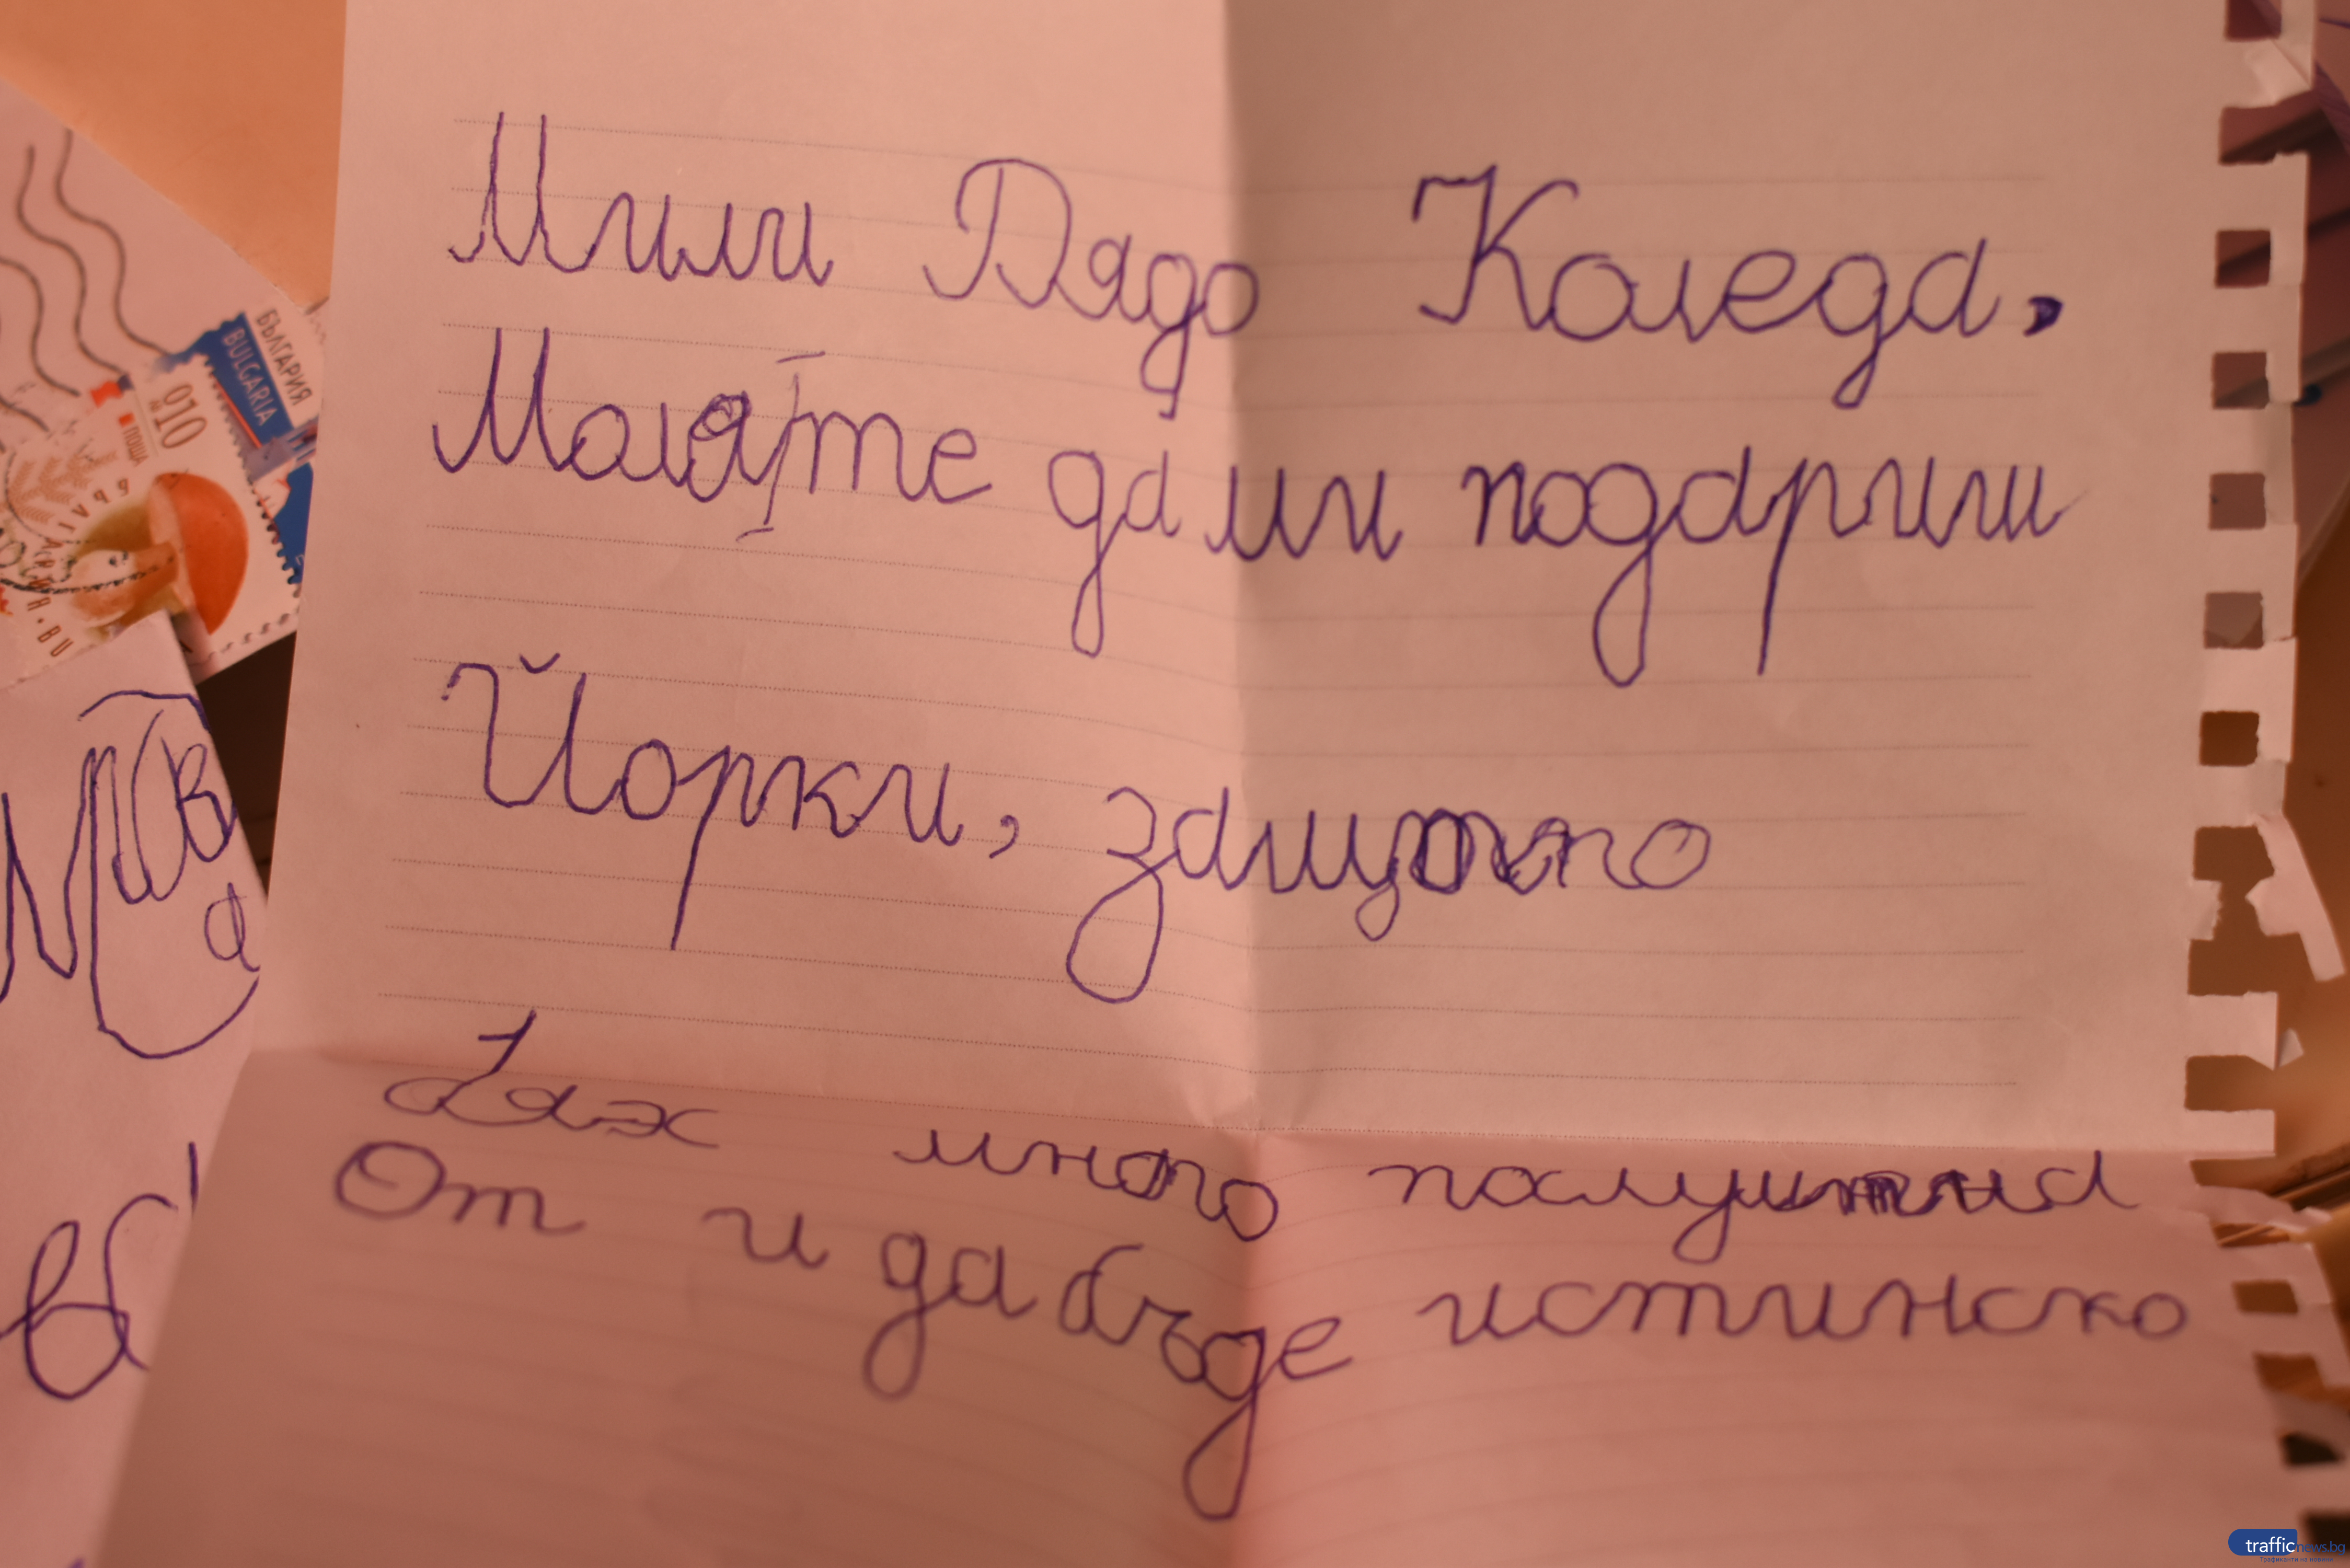 Мили Дядо Коледа,
Моля те да ми подариш
Йорки, защото
бях много послушна
От и да бъде истинско
БЪЛГАРИЯ
BULGARIA
010
ПОЩА
trafficnews.bg